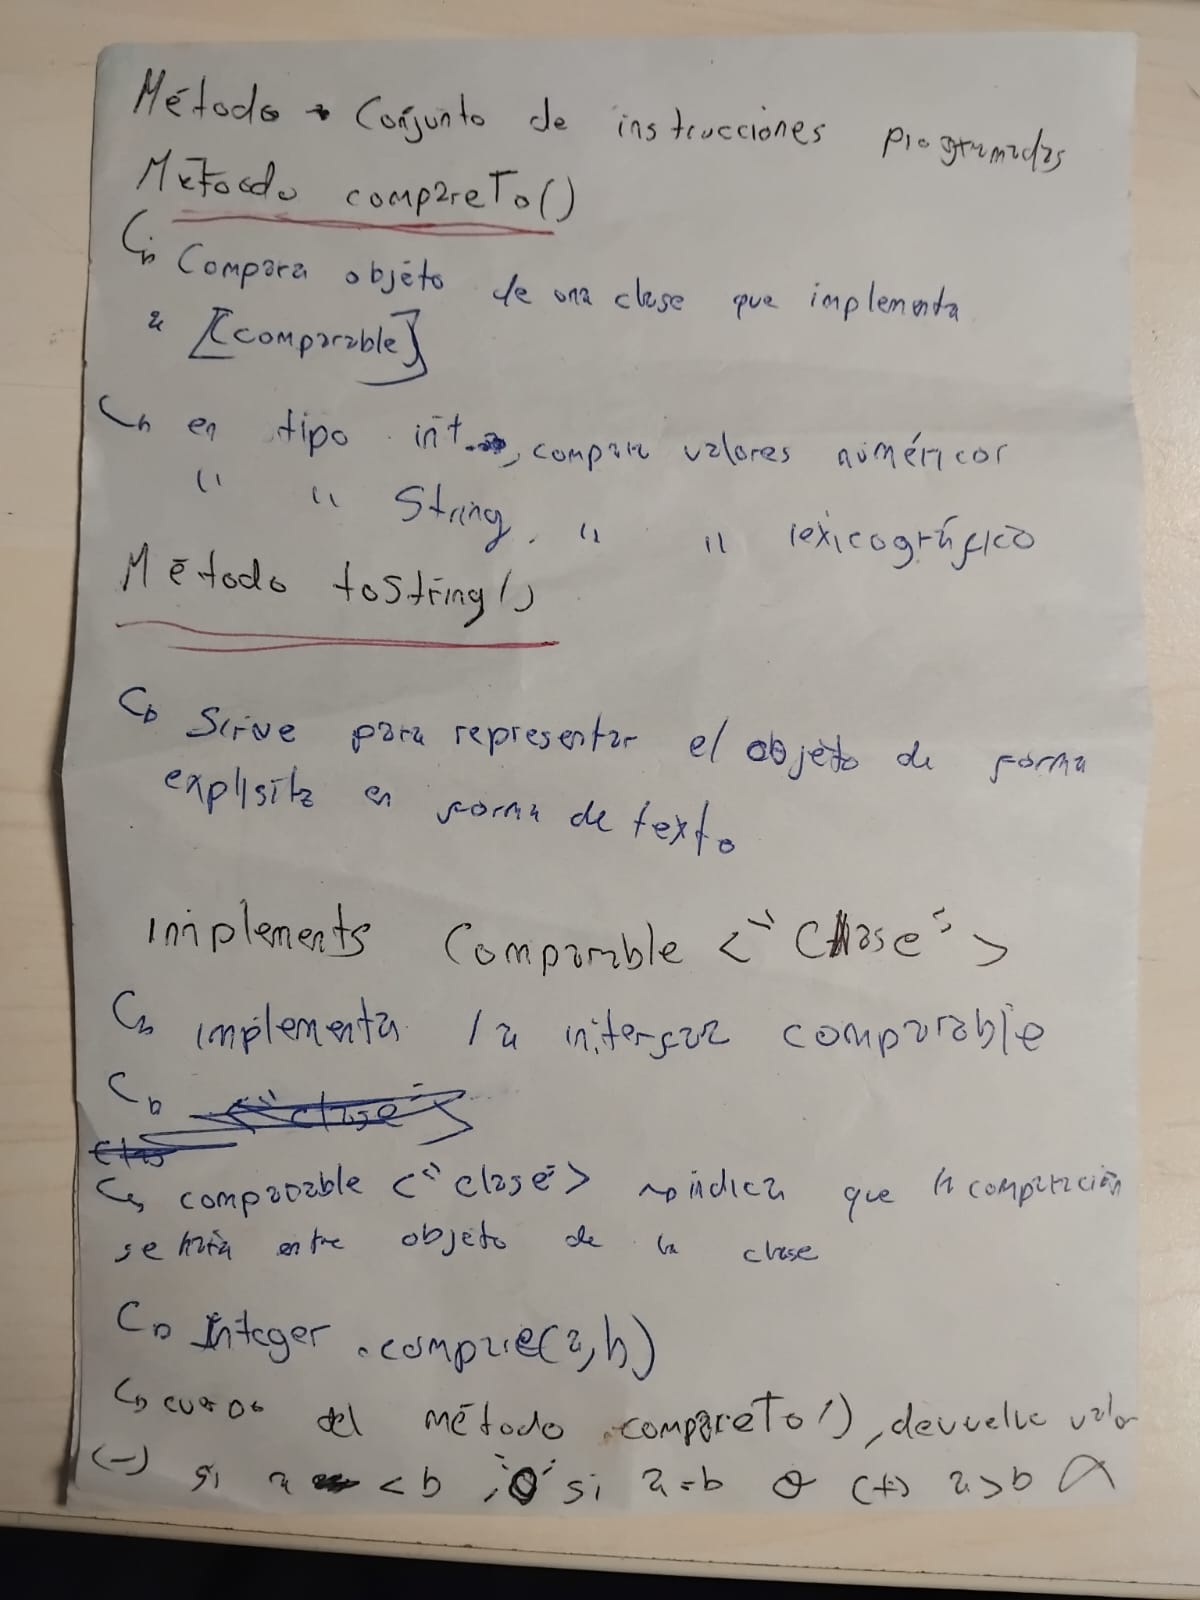 Método → Conjunto de instrucciones programadas
Método compareTo()
↳ Compara objeto de una clase que implementa
a [comparable]
↳ en tipo int, compara valores numéricos
" " String. " " lexicográfico
Método toString()
↳ Sirve para representar el objeto de forma
explisíta en forma de texto
implements Comparable <"Clase">
↳ implementa la interfaz comparable
↳ <"clase">
Clas
↳ comparable <"clase"> → indica que la comparación
se haía entre objeto de la clase
↳ Integer .compare(a,b)
↳ del método .compareTo(), devuelve valor
(-) si a < b , '0' si a=b o (+) a>b